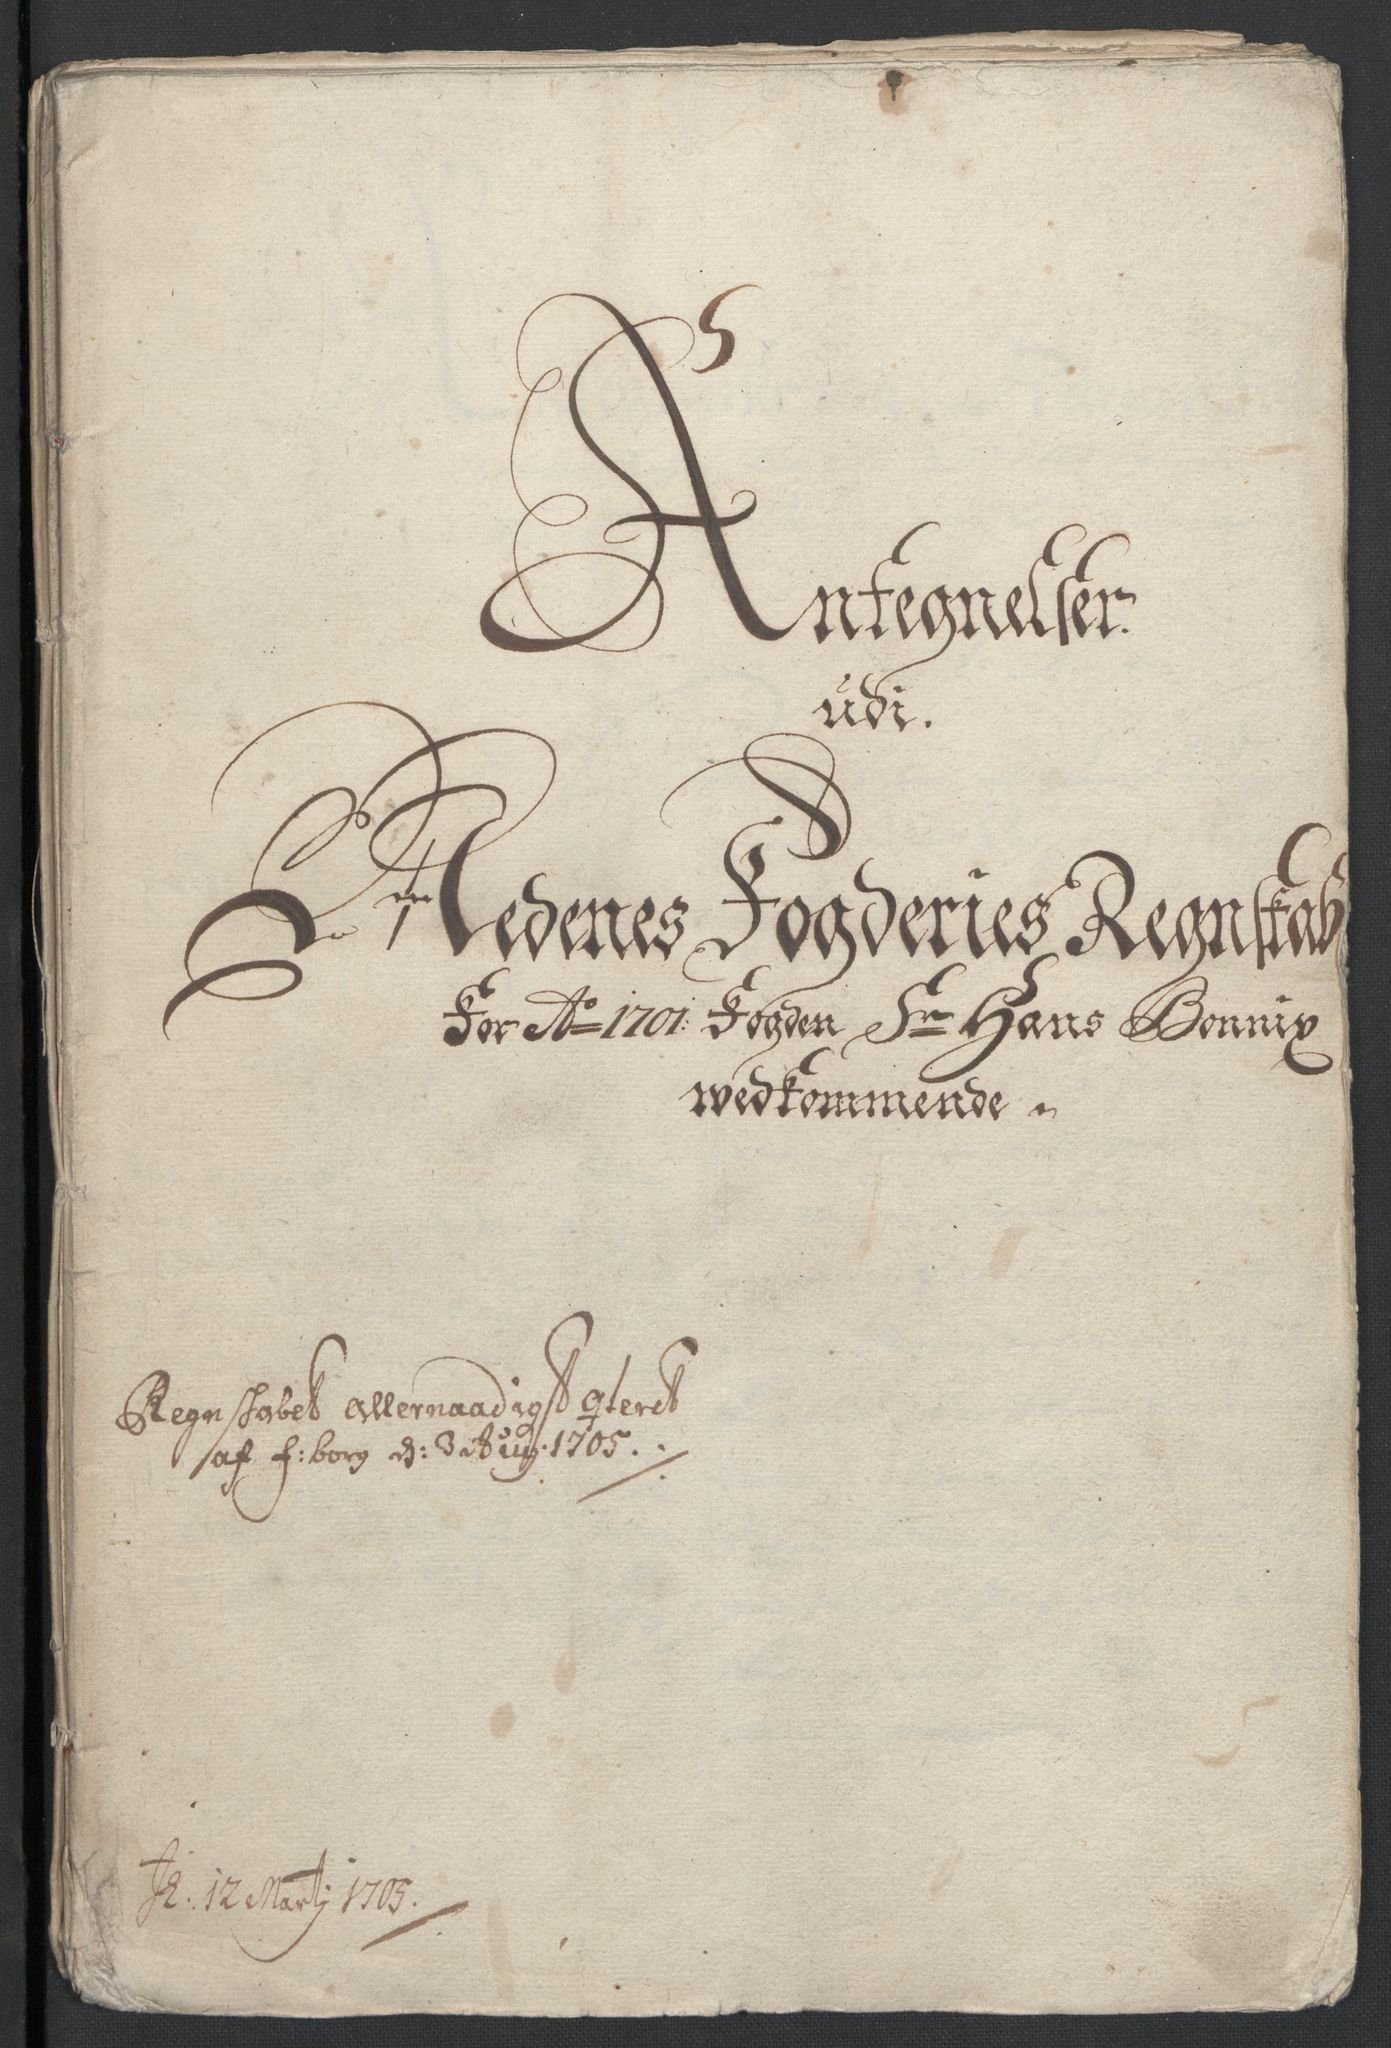 Antegnelser.
udi.
Nedenes Fogderies Regnskab
For Ao 1701: Fogden Sr Hans Bonnix
wedkommende
Regnskabet allernaadigst qteret
af f: borg d: 3 Aug. 1705.
12 Martij 1705.